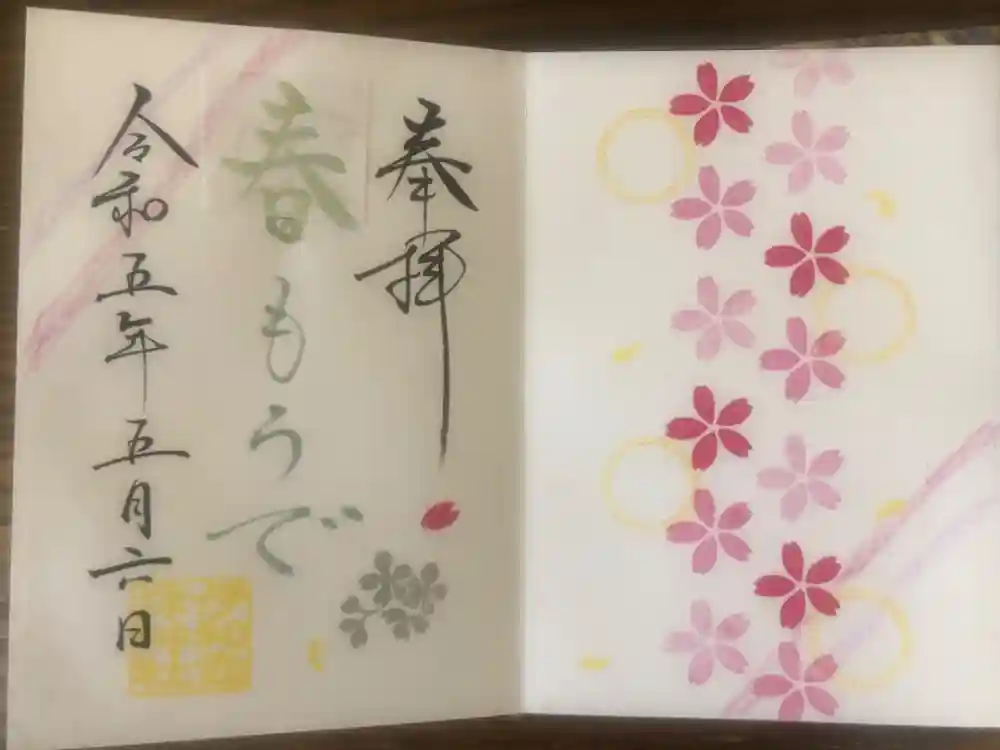 奉拝
春もうで
令和五年五月六日